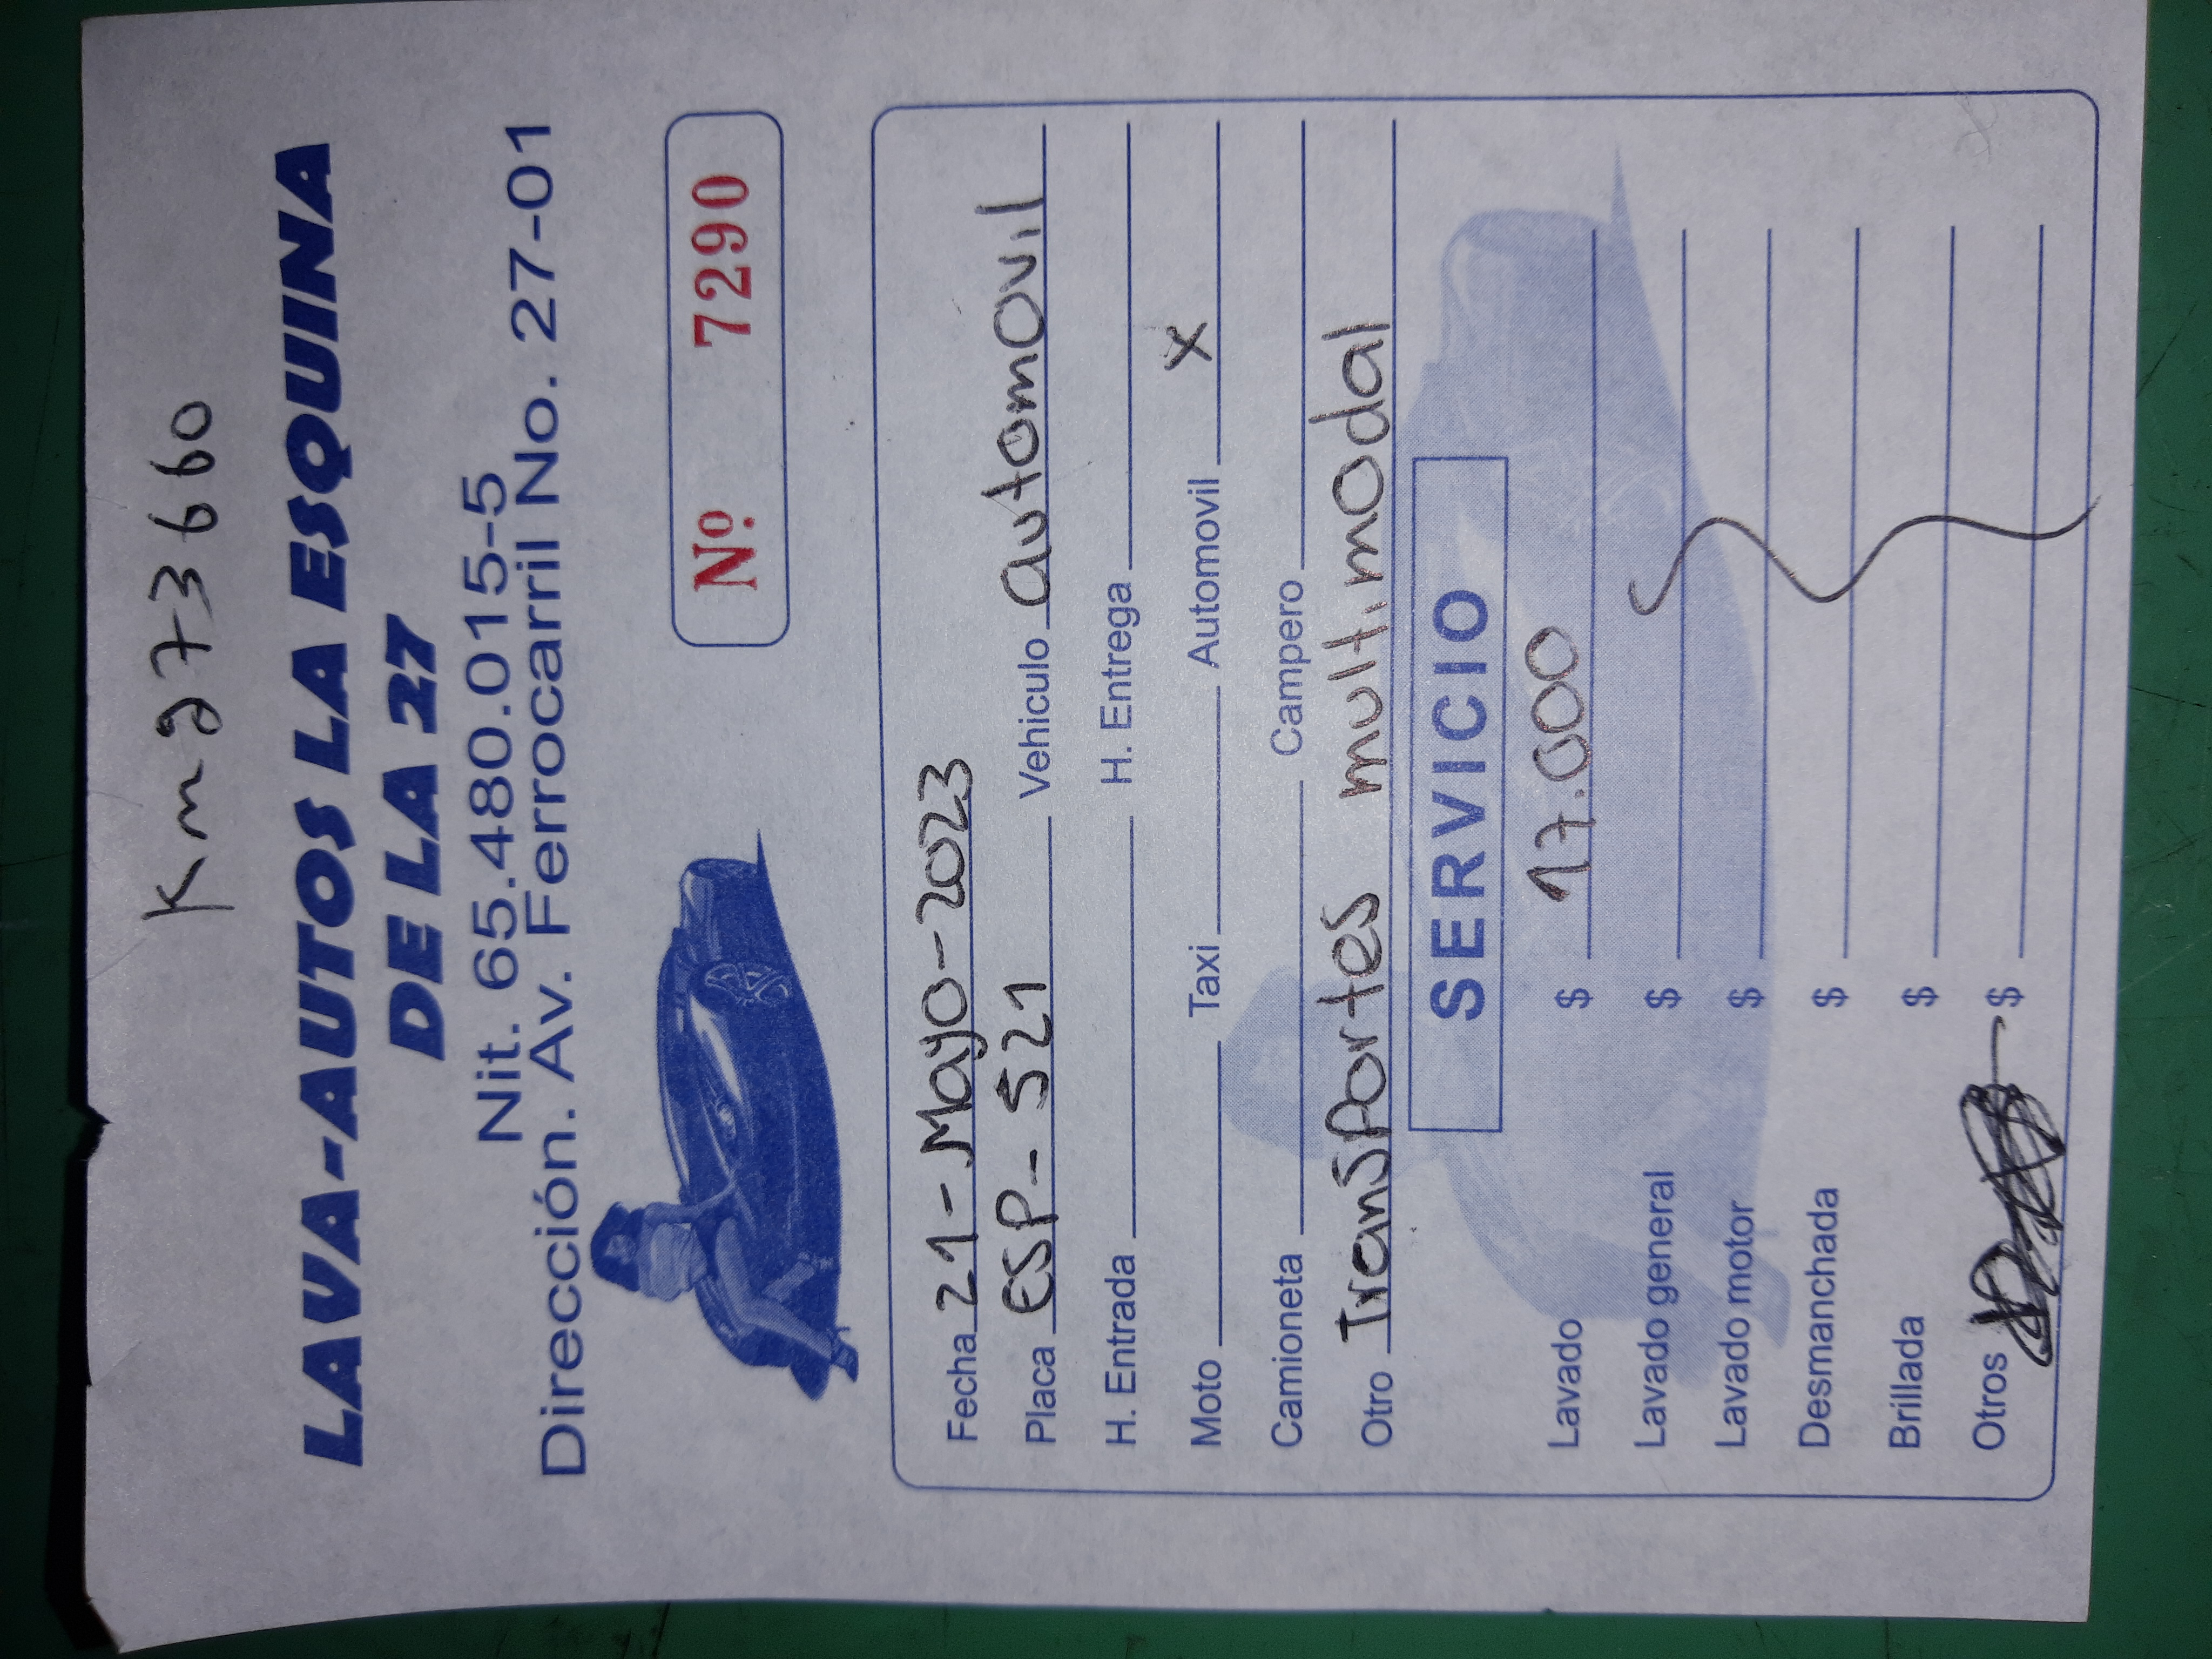 Km 273660
LAVA-AUTOS LA ESQUINA
DE LA 27
Nit. 65.480.015-5
Dirección. Av. Ferrocarril No. 27-01
Nº. 7290
Fecha 21-Mayo-2023
Placa ESP-521 Vehiculo automovil
H. Entrada H. Entrega
Moto Taxi Automovil X
Camioneta Campero
Otro Transportes multimodal
SERVICIO
Lavado $ 17.000
Lavado general $
Lavado motor $
Desmanchada $
Brillada $
Otros $